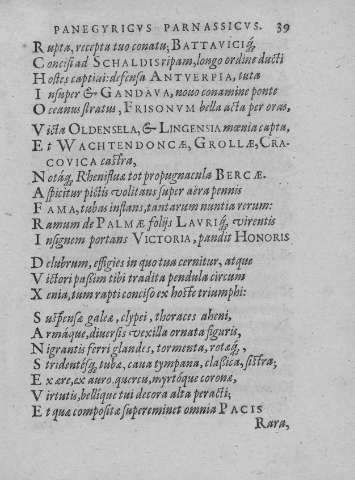 PANEGYRICVS PARNASSICVS. 39
Rupta, recepta tuo conatu; BATTAVICIq́₃
Concisi ad SCHALDIS ripam, longo ordine ducti
Hostes captiui: defensa ANTVERPIA, tuta
Insuper & GANDAVA, nouo conamine ponte
Oceanus stratus, FRISONVM bella acta per oras,
Victa OLDENSELA, & LINGENSIA mœnia capta,
Et WACHTENDONCÆ, GROLLÆ, CRA-
COVICA castra,
Notáq₃ Rhenifluæ tot propugnacula BERCÆ.
Aspicitur pictis volitans super aëra pennis
FAMA, tubas instans, tantarum nuntia rerum:
Ramum de PALMÆ folijs LAVRIq́₃ virentis
Insignem portans VICTORIA, pandis HONORIS
Delubrum, effigies in quo tua cernitur, atque
Victori passim tibi tradita pendula circum
Xenia, tum rapti conciso ex hoste triumphi:
Suspensæ galeæ, clypei, thoraces aheni,
Armáque, diuersis vexilla ornata figuris,
Nigrantis ferri glandes, tormenta, rotæq́₃,
Stridentésq₃ tubæ, caua tympana, classica, sistra;
Ex ære, ex auro, quercu, myrtóque coronæ,
Virtutis, bellique tui decora alta peracti;
Et quæ compositæ supereminet omnia PACIS
Rara,